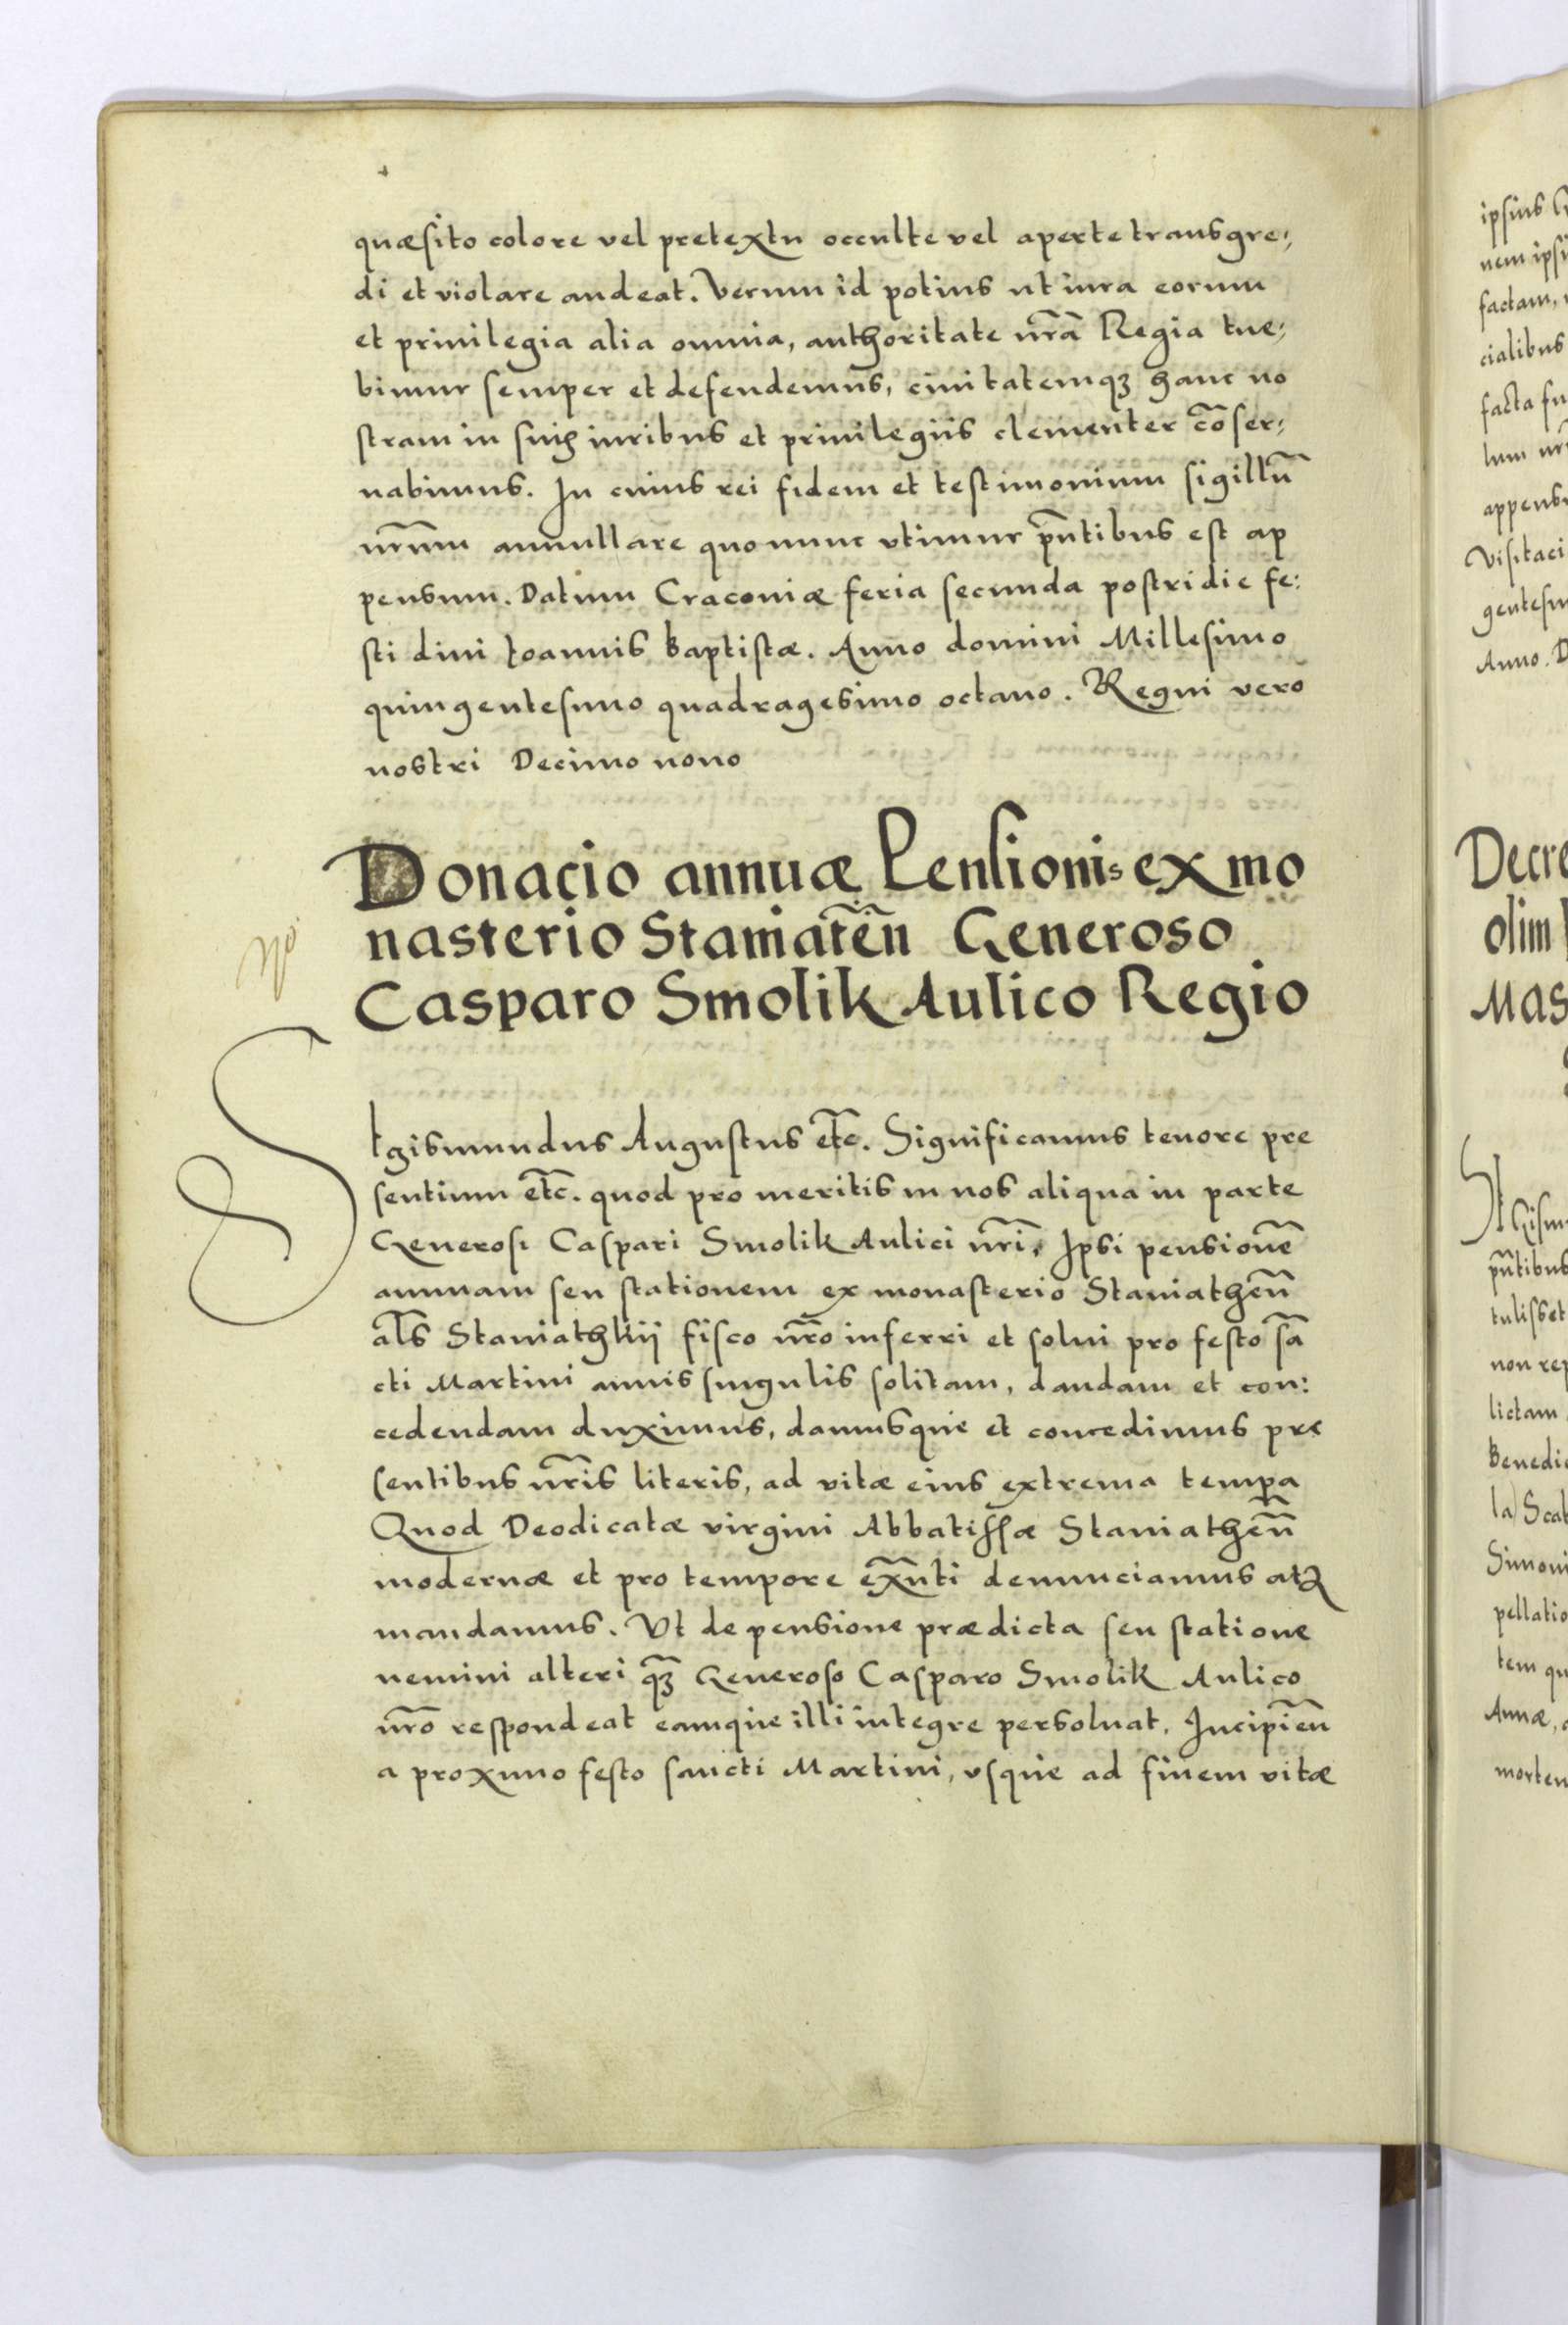 quæsito colore vel pretextu occulte vel aperte transgre:
di et violare audeat. Verum id potius ut iura eorum
et priuilegia alia omnia, authoritate nr̃a Regia tue:
bimur semper et defendemus, ciuitatemqꝫ hanc no
stram in suis iuribus et priuilegiis clementer cõser:
uabimus. In cuius rei fidem et testimonium sigillũ
nr̃um annullare quo nunc vtimur pñtibus est ap
pensum. Datum Cracouiæ feria secunda postridie fe:
sti diui Ioannis Baptistæ. Anno domini Millesimo
quingentesimo quadragesimo octauo. Regni vero
nostri Decimo nono
Donacio annuæ Pensionis ex mo
nasterio Staniateñ Generoso
Casparo Smolik Aulico Regio
SIgismundus Augustus etc̃. Significamus tenore pre
sentium etc̃. quod pro meritis in nos aliqua in parte
Generosi Caspari Smolik Aulici nr̃i, Ipsi pensionẽ
annuam seu stationem ex monasterio Staniatheñ
al̃s Staniathkij fisco nr̃o inferri et solui pro festo sã
cti Martini annis singulis solitam, dandam et con:
cedendam duximus, damusque et concedimus pre
sentibus nr̃is literis, ad vitæ eius extrema temp̱a
Quod Deodicatæ virgini Abbatissæ Staniatheñ
modernæ et pro tempore ex̃nti denunciamus atqꝫ
mandamus. Vt de pensione prædicta seu statione
nemini alteri q̃ꝫ Generoso Casparo Smolik Aulico
nr̃o respondeat eamque illi integre persoluat. Incipieñ
a proximo festo sancti Martini, vsque ad finem vitæ
ipsius
nem
factam,
cialibus
facta
lum
Visitaci
Anno.
Decre
olim
Mas
pñtibus
tulisset
non
lictam
Simoni
pellatio
tem
Annæ,